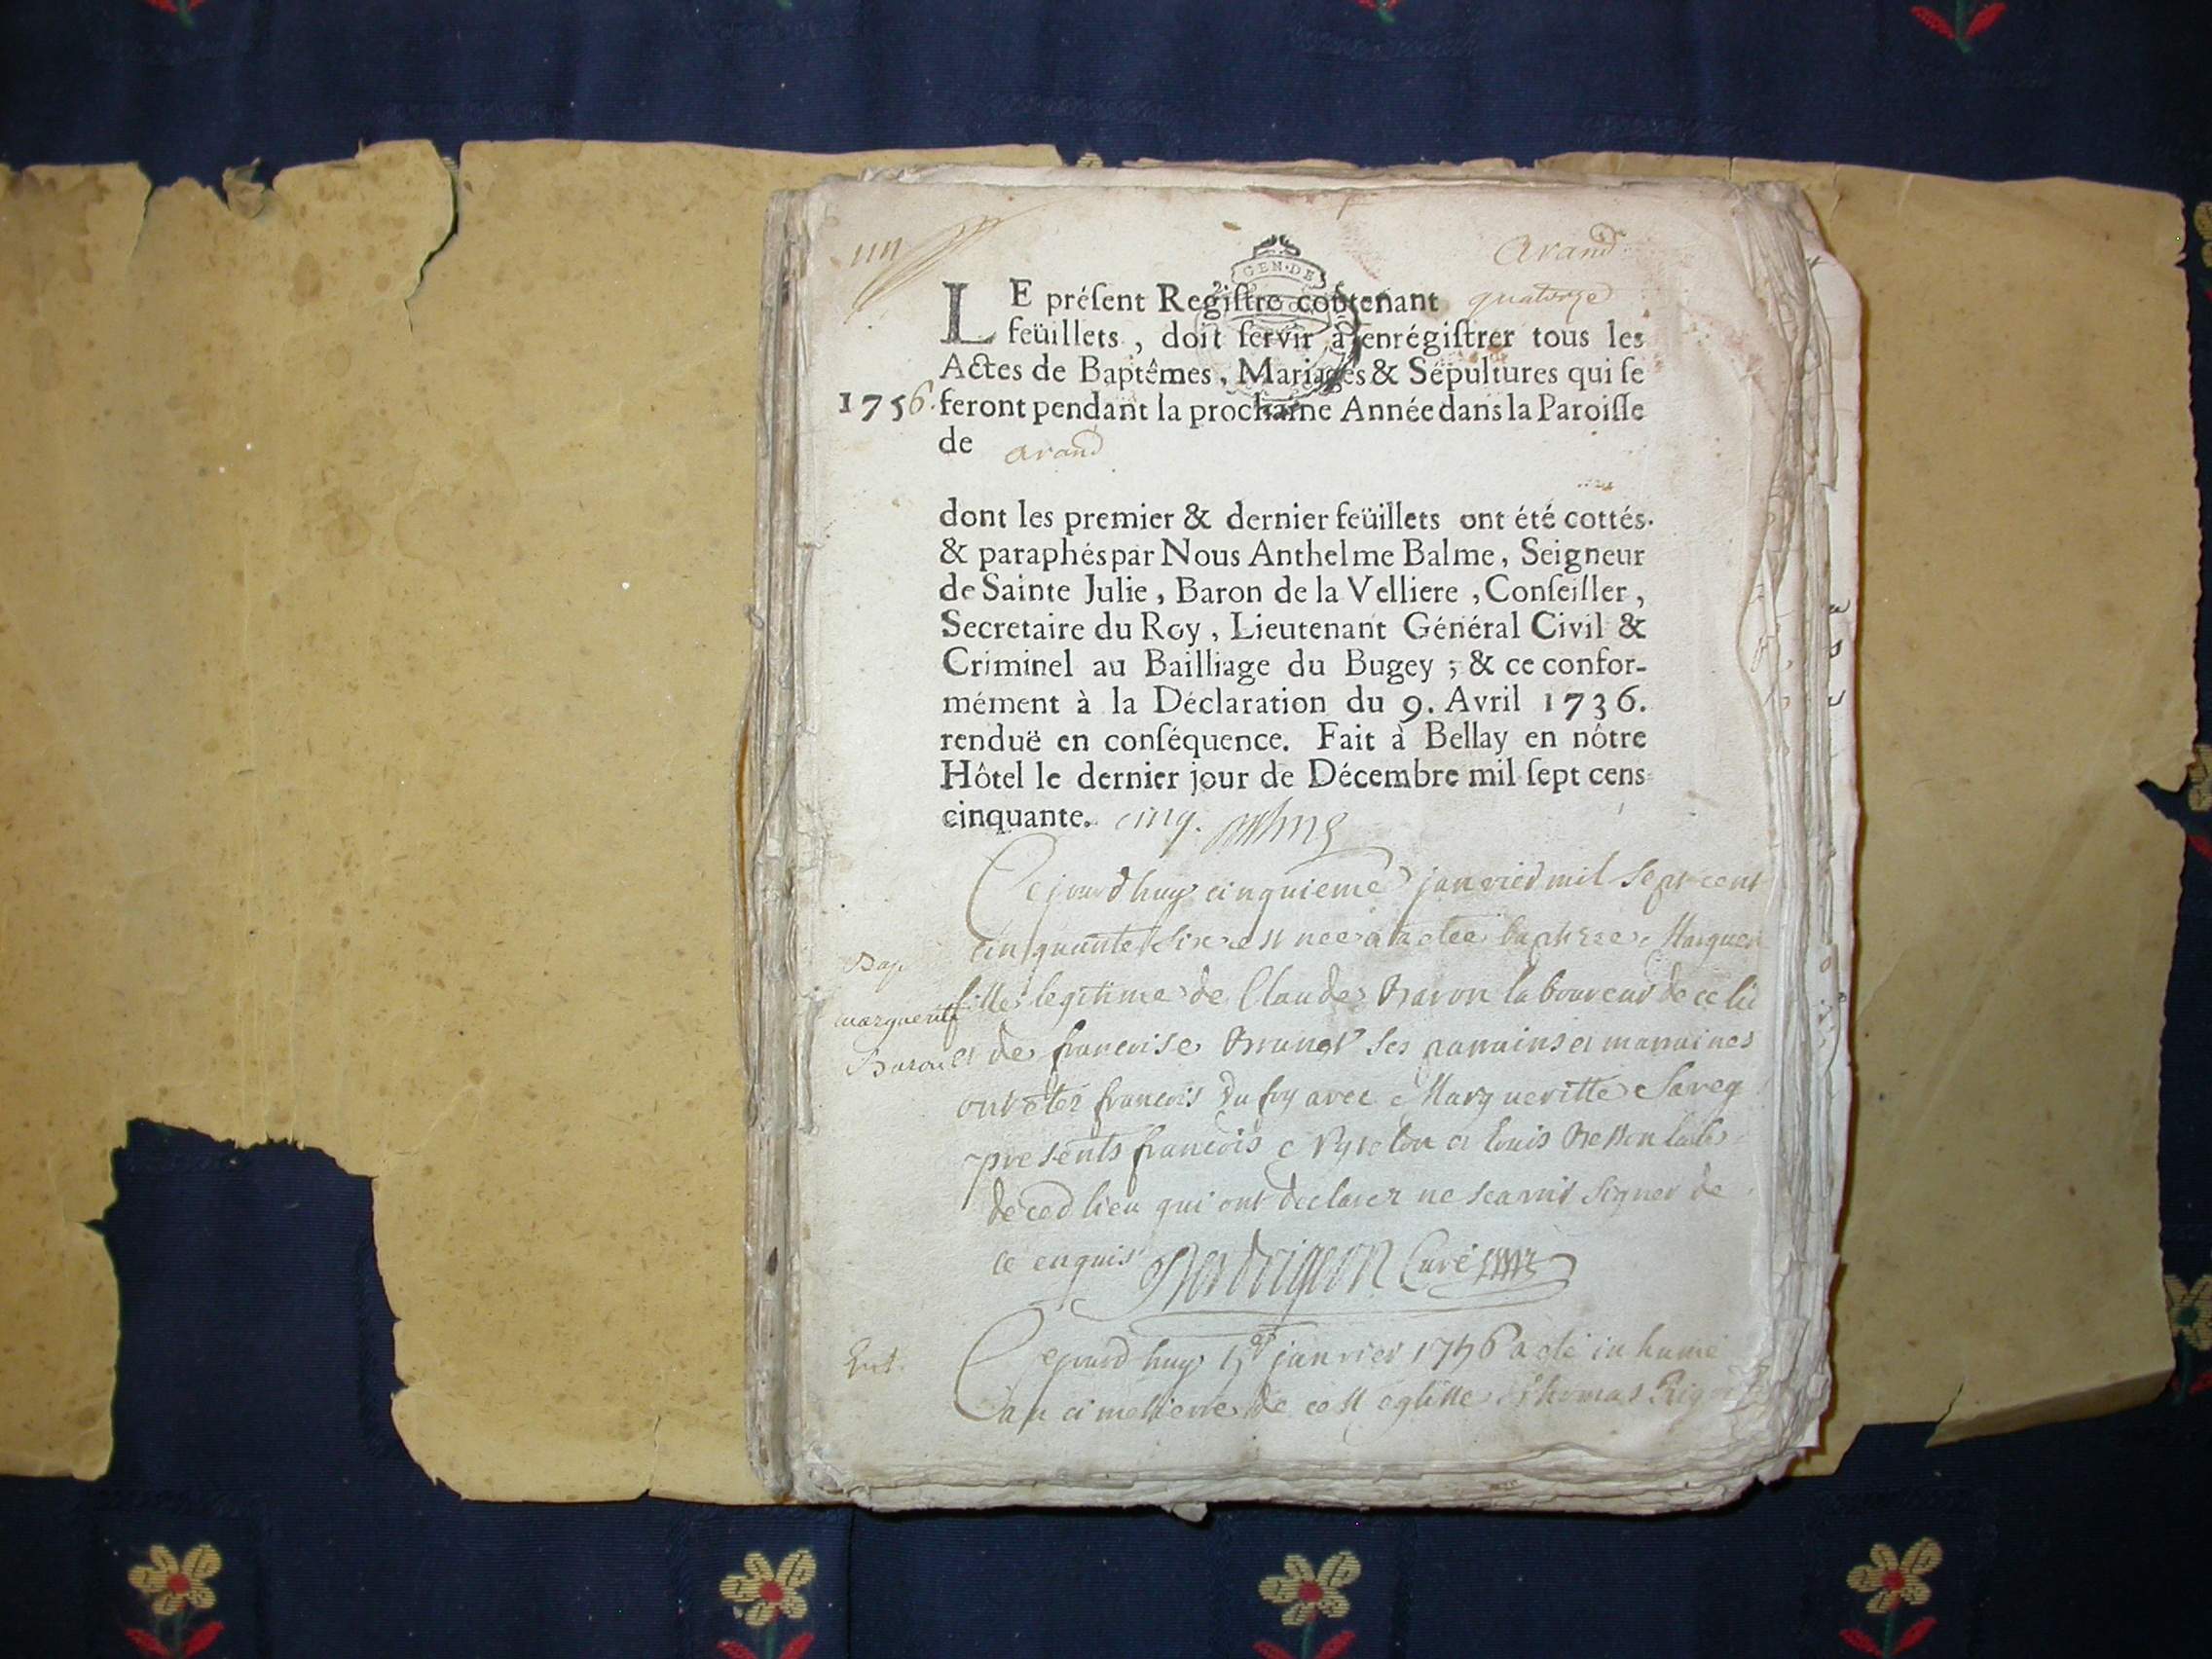 un
Arand
GEN·DE
LE préſent Regiſtre contenant quatorze
feüillets, doit ſervir à enrégiſtrer tous les
Actes de Baptêmes, Mariages & Sépultures qui ſe
1756. feront pendant la prochaine Année dans la Paroiſſe
de Arand
dont les premier & dernier feüillets ont été cottés.
& paraphés par Nous Anthelme Balme, Seigneur
de Sainte Julie, Baron de la Velliere, Conſeiller,
Secretaire du Roy, Lieutenant Général Civil &
Criminel au Bailliage du Bugey; & ce confor-
mément à la Déclaration du 9. Avril 1736.
renduë en conſéquence. Fait à Bellay en nôtre
Hôtel le dernier jour de Décembre mil ſept cens
cinquante. cinq.
Cejourd'huy cinquieme janvier mil sept cent
cinquante six est nee a etee baptizee Marguer
Bap.
marguerite
Baron
fille legitime de Claude Baron laboureur de ce lieu
et de francoise Brunet ses parrains et marraines
ont etez francois Dufy avec Margueritte
presents francois et Louis
de ced lieu qui ont declarez ne scavoir signer de
ce enquis Curé
Ent.
Cejourd huy janvier 1756 a eté inhumé
au cimettierre de cest eglisse Thomas